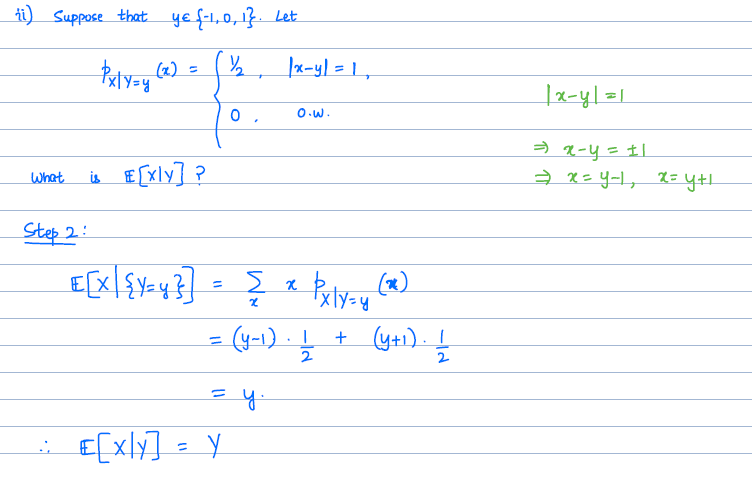 ii) Suppose that y∈{-1, 0, 1}. Let
p_{X|Y=y}(x) = { 1/2 , |x-y| = 1 ,
0 , o.w.
|x-y| = 1
⇒ x-y = ±1
What is 𝔼[X|Y] ?
⇒ x = y-1, x = y+1
Step 2:
𝔼[X|{Y=y}] = Σ_x x p_{X|Y=y}(x)
= (y-1) · 1/2 + (y+1) · 1/2
= y.
∴ 𝔼[X|Y] = Y